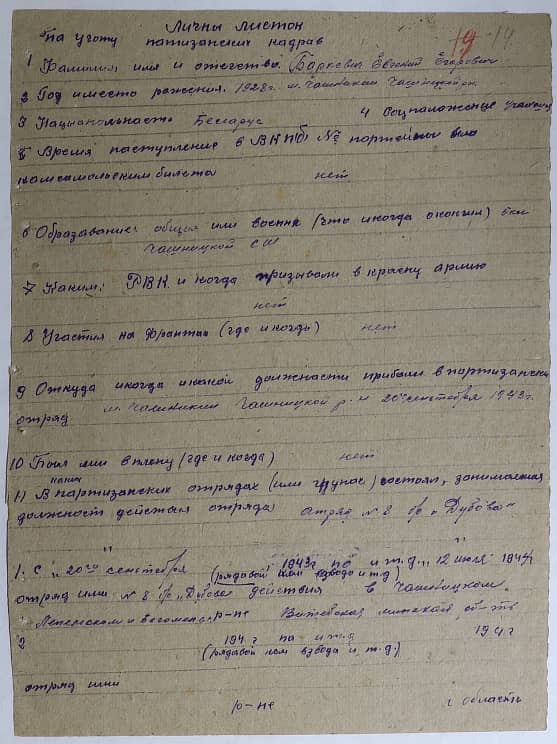 Личны листок
На учоту патизанских кадрав
19 14
1 Фамилия имя и отечество Боркевич Евгений Егорович
2 Год иместо рожения. 1928г. м. Чашники Чашницкий р.
3 Национальность Беларус 4 Соцположение учащийся
5 Время наступление в ВКПб № портейны била
комсамольским билета нет
6 Образавание общия или военна (что иногда окончил)
Чашницкой с ш
7 Каким: РВК. и когда призывали в красну армию
нет
8 Участия на франтах (где и когды) нет
9 Откуда иногда икакой должнасти прибыли в портизански
отряд м. Чашники Чашницкой р. н 20го сентебря 1943 г.
10 Был или вплену (где и когда) нет
11 В каких партизанских отрядах (или групах) состоял, занимаемая
должност действия отряда отряд № 8 бр „Дубова“
1. С „20го сентебря 1943г по и т.д. 12 июля 1944
(рядавой ком взвода и т.д)
отряд или № 8 бр „Дубова“ действия в Чашницком.
Лепельском и бегомель: р-не Витебская минской об-ть
2 194 г по и т.д 194 г
(рядавой ком взвода и, т.д.)
отряд или
р-не область